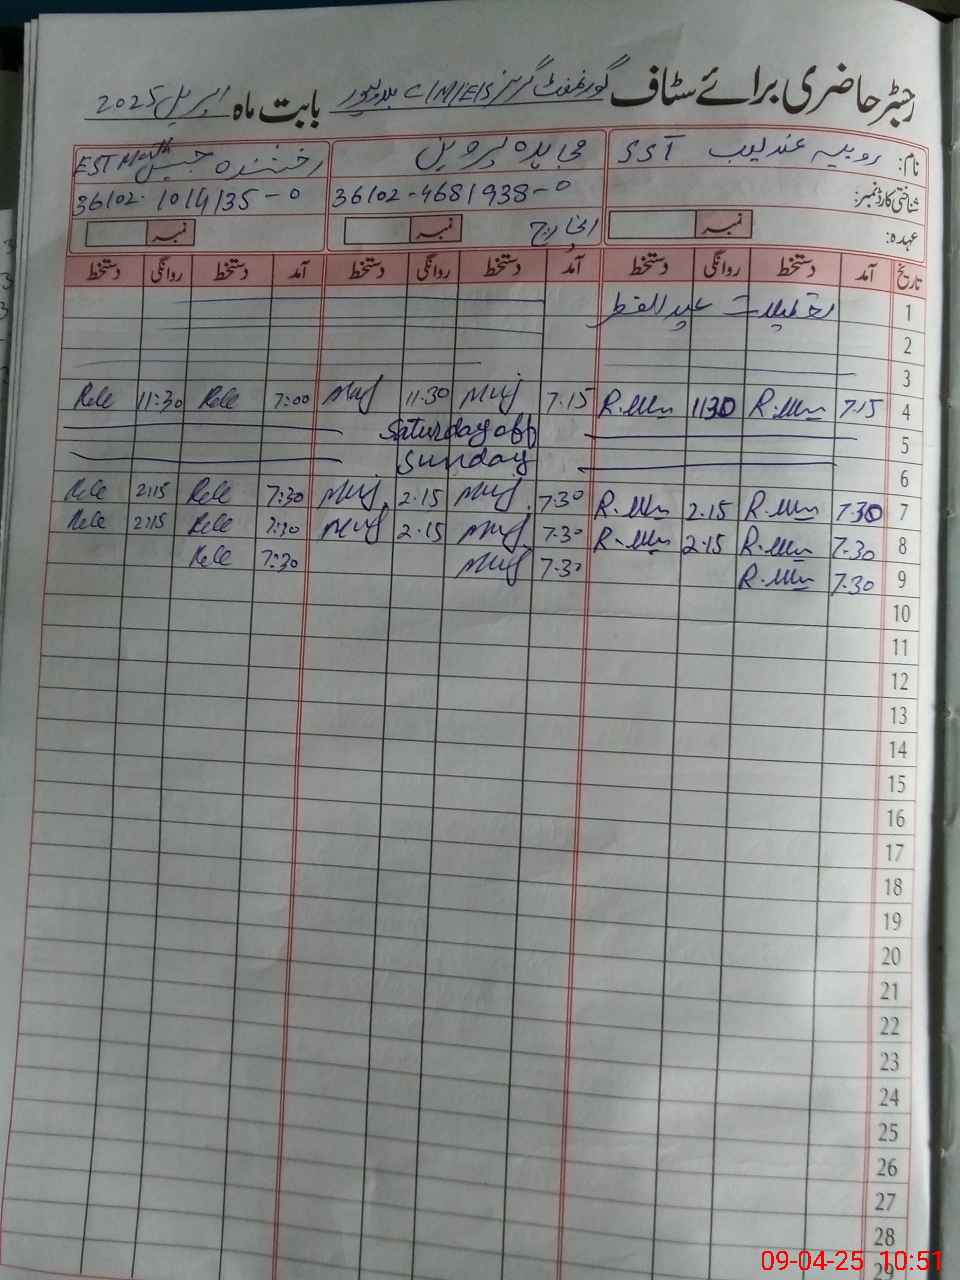 رجسٹر حاضری برائے سٹاف گورنمنٹ گرلز C/M/E/S بابت ماہ اپریل 2025
نام: روبینہ عندلیب SST مجاہدہ پروین رخشندہ جبیں EST Math
شناختی کارڈ نمبر: 36102-4681938-0 36102-1014135-0
عہدہ: نمبر انچارج نمبر نمبر
تاریخ آمد دستخط روانگی دستخط آمد دستخط روانگی دستخط آمد دستخط روانگی دستخط
1 تعطیلات عید الفطر
2
3
4 7.15 R.Um 1130 R.Um 7.15 Muj 11.30 Muj 7:00 Rele 11:30 Rele
5 Saturday off
6 Sunday
7 7.30 R.Um 2.15 R.Um 7.30 Muj 2.15 Muj 7:30 Rele 2:15 Rele
8 7.30 R.Um 2.15 R.Um 7.30 Muj 2.15 Muj 7:30 Rele 2:15 Rele
9 7.30 R.Um 7.30 Muj 7:30 Rele
10
11
12
13
14
15
16
17
18
19
20
21
22
23
24
25
26
27
28
29
09-04-25 10:51